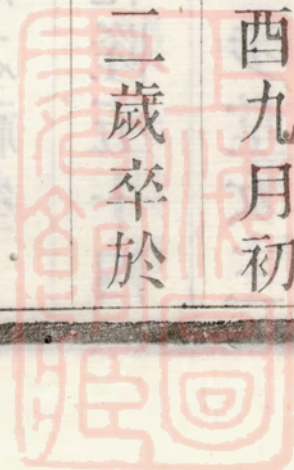 酉九月初
二歲卒於